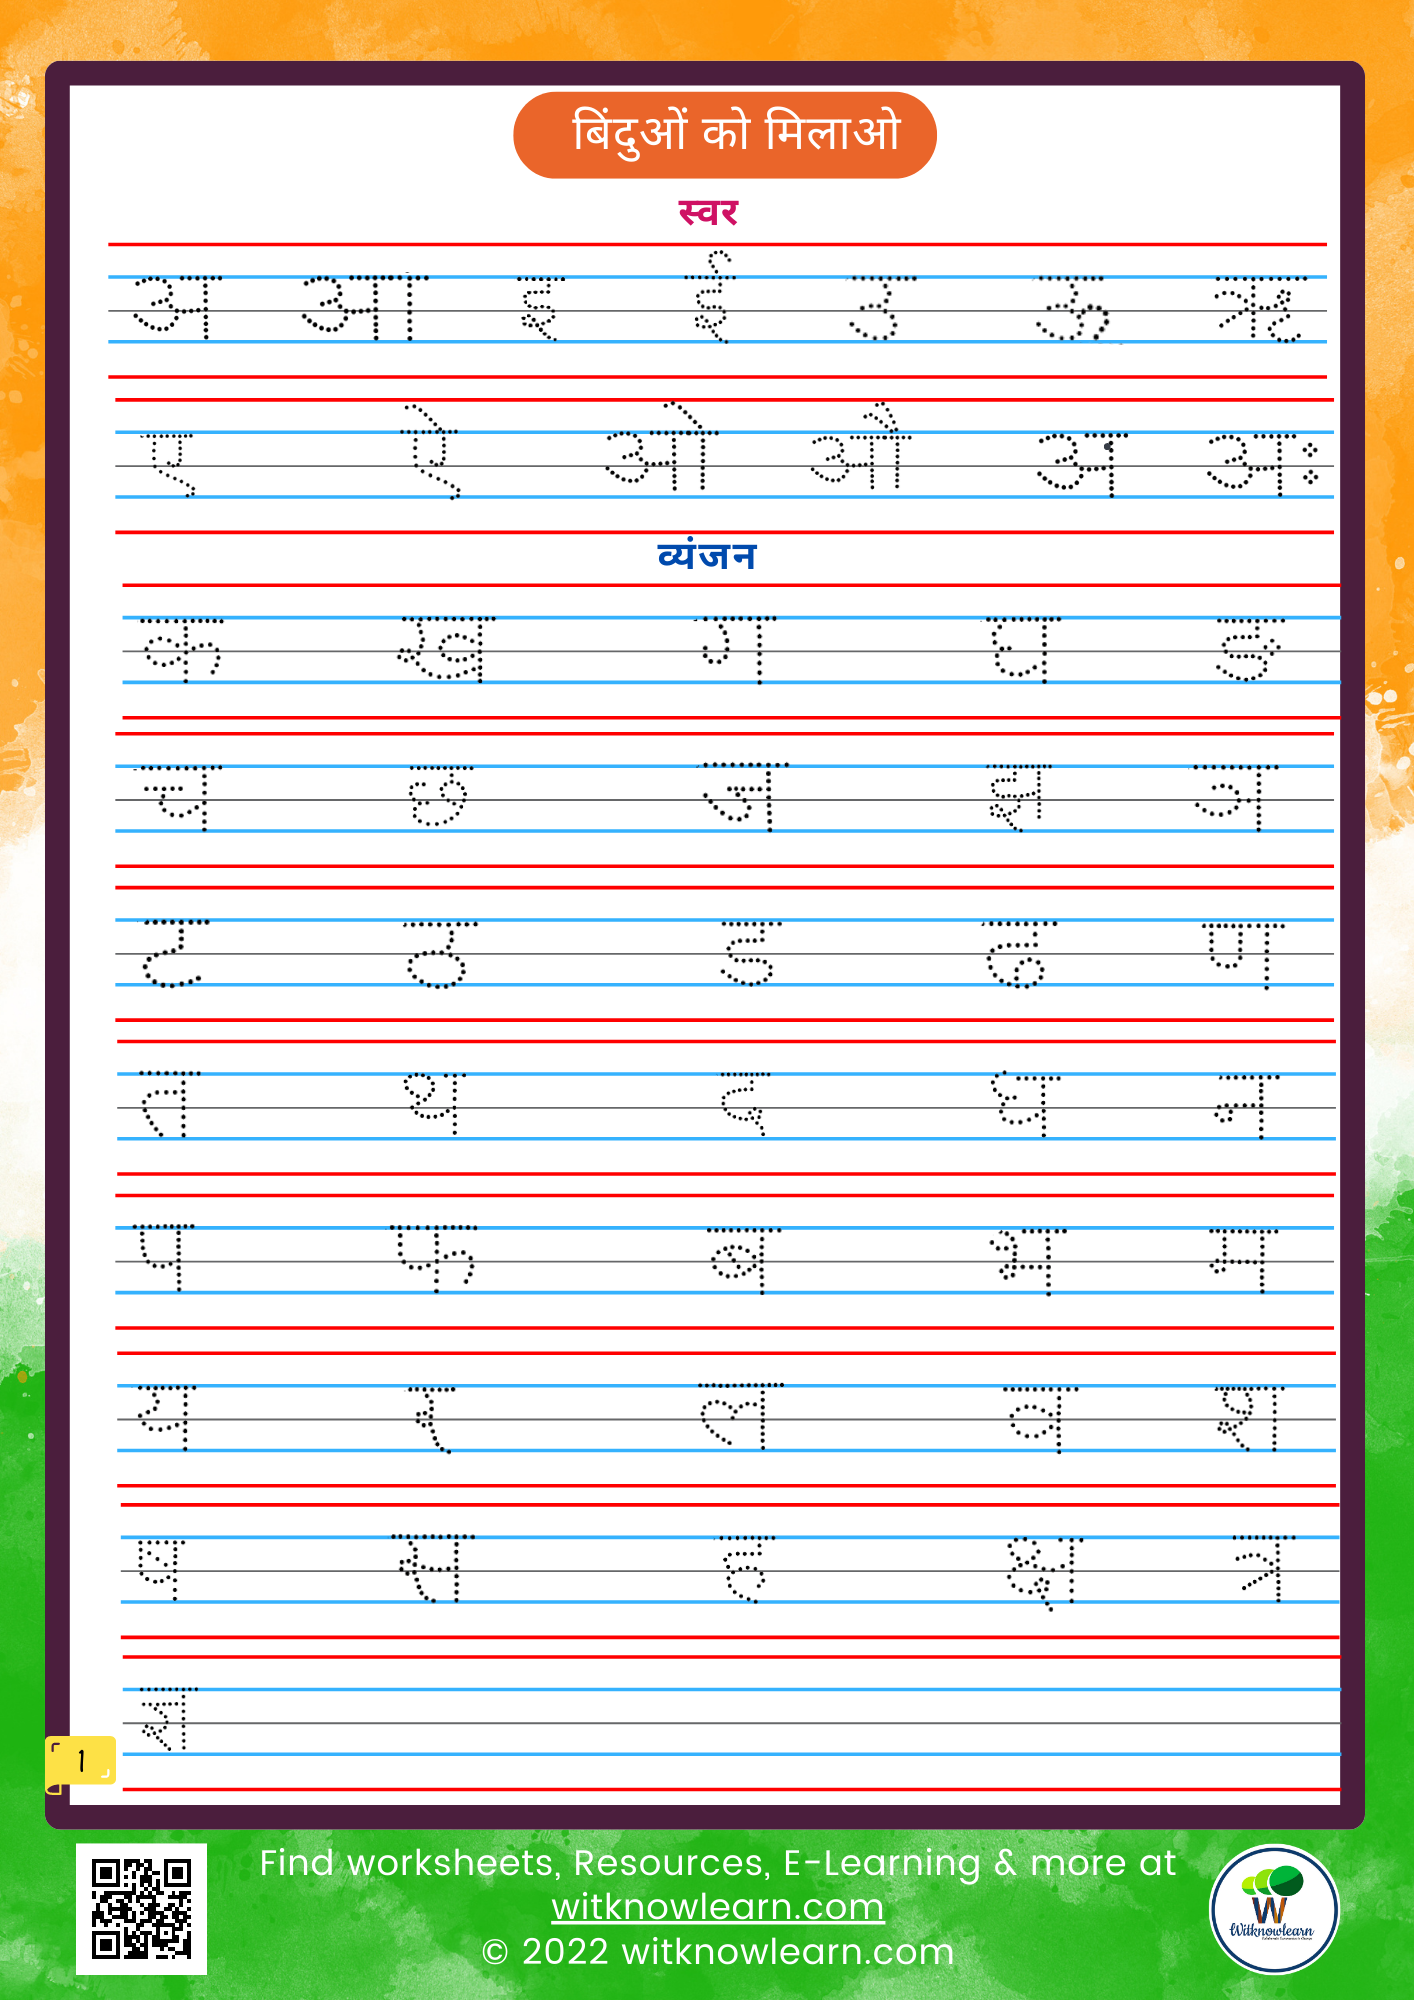 बिंदुओं को मिलाओ
स्वर
अ आ इ ई उ ऊ ऋ
ए ऐ ओ औ अं अः
व्यंजन
क ख ग घ ङ
च छ ज झ ञ
ट ठ ड ढ ण
त थ द ध न
प फ ब भ म
य र ल व श
ष स ह क्ष त्र
ज्ञ
1
Find worksheets, Resources, E-Learning & more at
witknowlearn.com
© 2022 witknowlearn.com
Witknowlearn